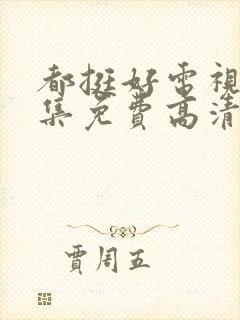 都挺好电視
集免费高清
賈周五